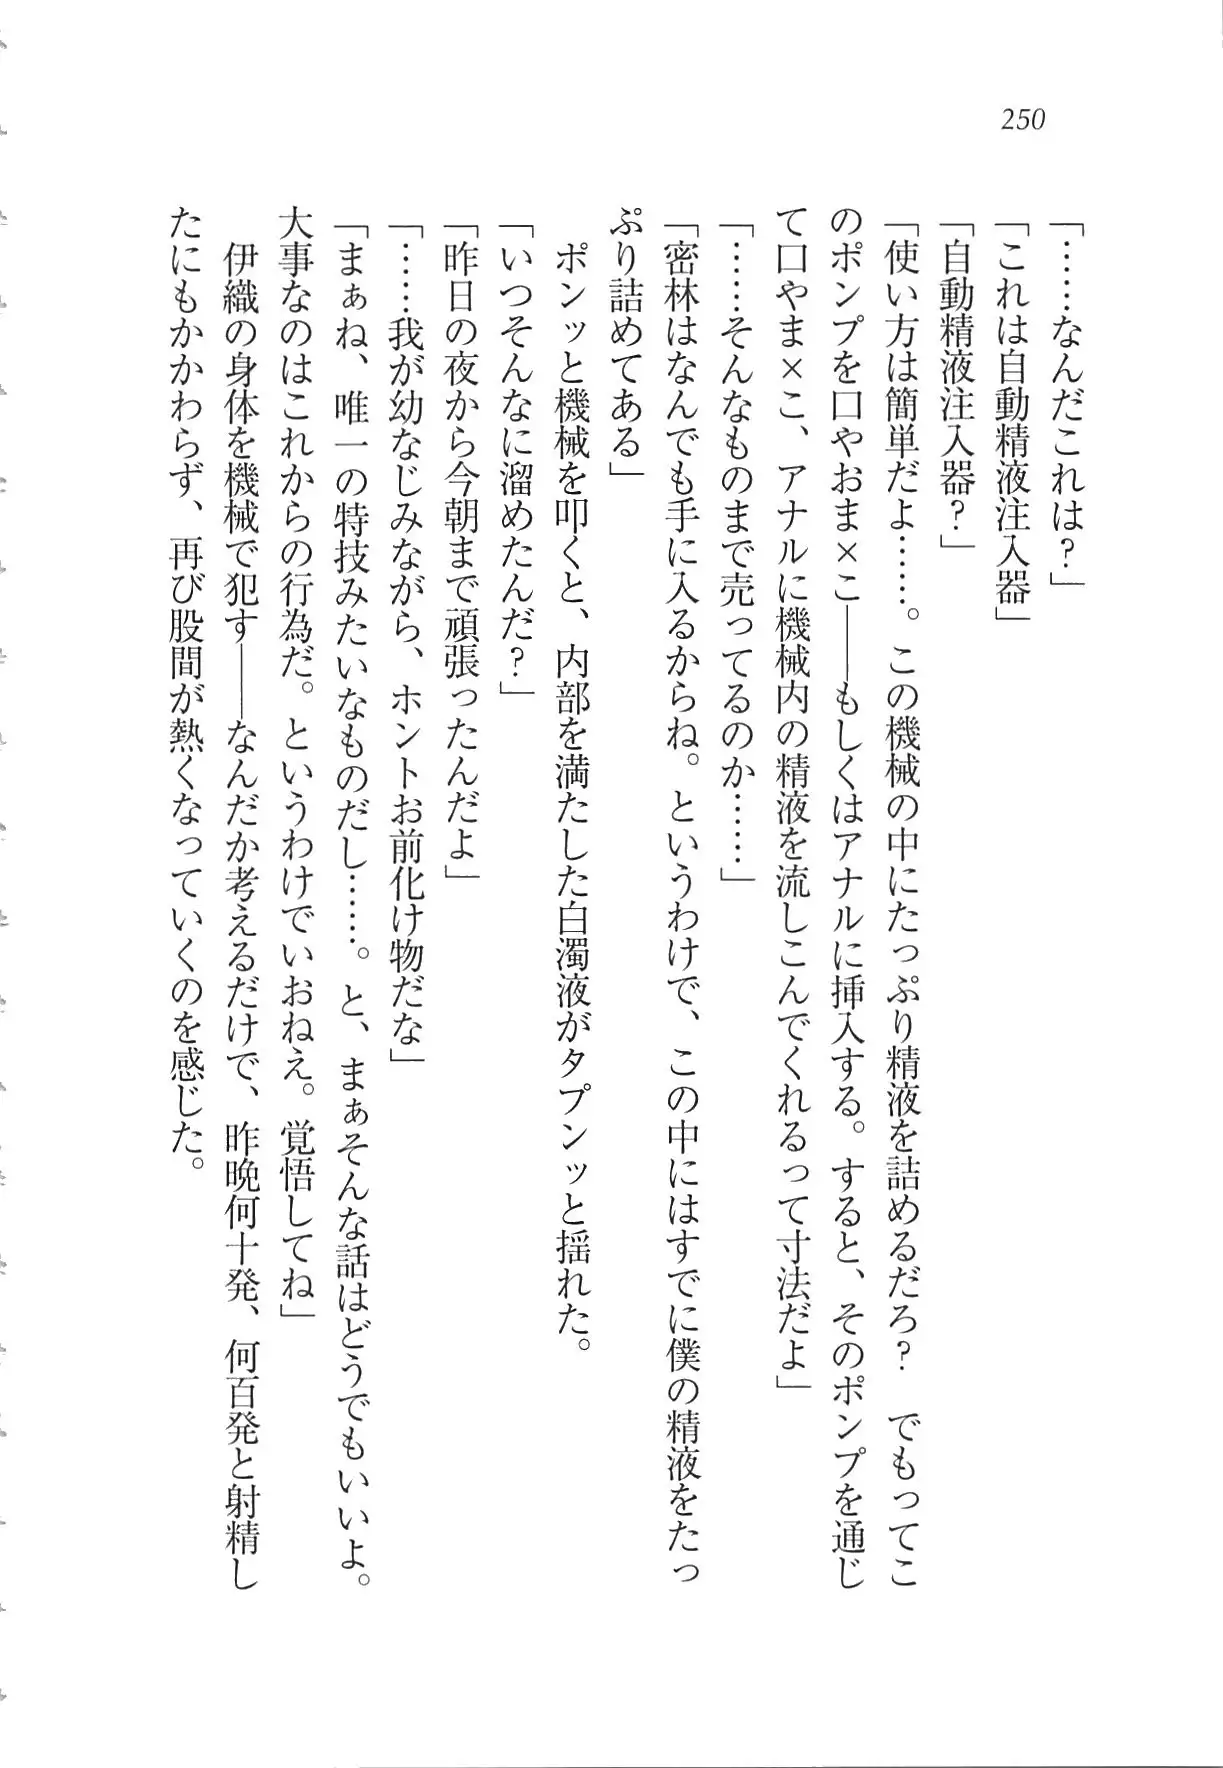 250
「……なんだこれは?」
「これは自動精液注入器」
「自動精液注入器?」
「使い方は簡単だよ……。この機械の中にたっぷり精液を詰めるだろ?　でもってこ
のポンプを口やおま×こ――もしくはアナルに挿入する。すると、そのポンプを通じ
て口やま×こ、アナルに機械内の精液を流しこんでくれるって寸法だよ」
「……そんなものまで売ってるのか……」
「密林はなんでも手に入るからね。というわけで、この中にはすでに僕の精液をたっ
ぷり詰めてある」
　ポンッと機械を叩くと、内部を満たした白濁液がタプンッと揺れた。
「いつそんなに溜めたんだ?」
「昨日の夜から今朝まで頑張ったんだよ」
「……我が幼なじみながら、ホントお前化け物だな」
「まぁね、唯一の特技みたいなものだし……。と、まぁそんな話はどうでもいいよ。
大事なのはこれからの行為だ。というわけでいおねえ。覚悟してね」
　伊織の身体を機械で犯す――なんだか考えるだけで、昨晩何十発、何百発と射精し
たにもかかわらず、再び股間が熱くなっていくのを感じた。